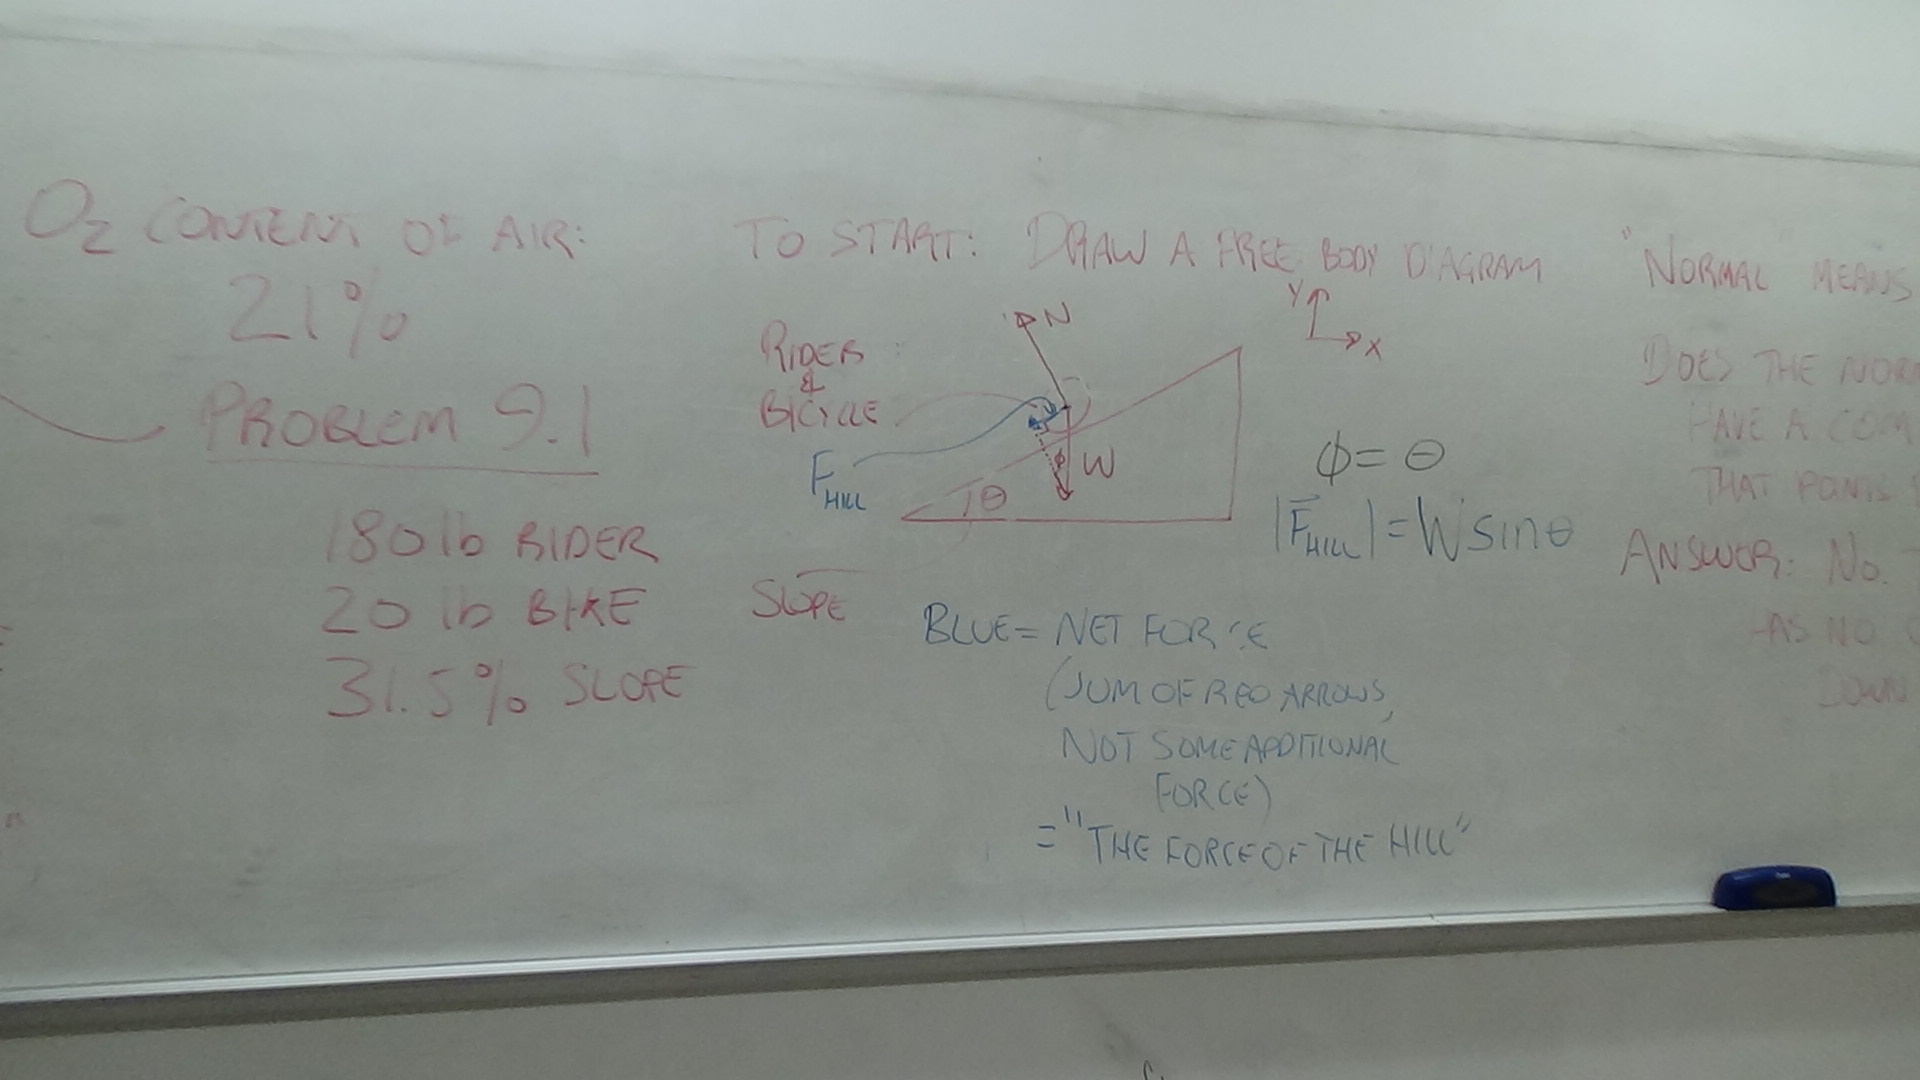 O2 CONTENT OF AIR:
21%
PROBLEM 9.1
180 lb RIDER
20 lb BIKE
31.5% SLOPE
TO START: DRAW A FREE BODY DIAGRAM
Y
X
N
RIDER
&
BICYCLE
F HILL
W
φ
θ
SLOPE
φ = θ
|F HILL| = W sin θ
BLUE = NET FORCE
(SUM OF RED ARROWS,
NOT SOME ADDITIONAL
FORCE)
= "THE FORCE OF THE HILL"
"NORMAL" MEANS
DOES THE
HAVE A
THAT POINTS
ANSWER: NO.
HAS NO
DOWN